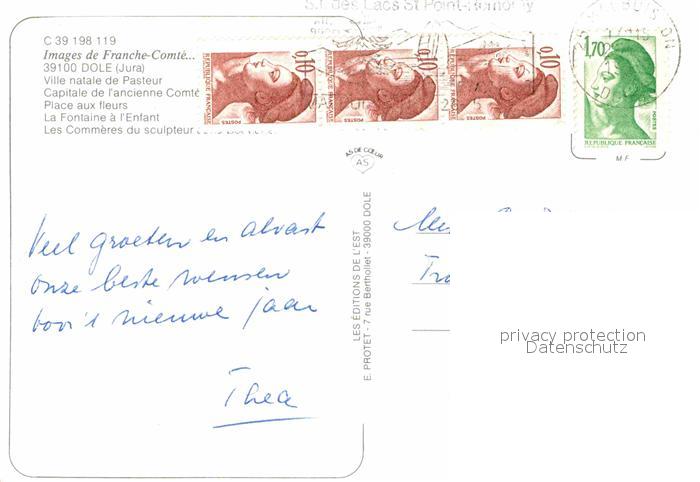 S.I. des Lacs St Point-
C 39 198 119
Images de Franche-Comté...
39100 DOLE (Jura)
Ville natale de Pasteur
Capitale de l'ancienne Comté
Place aux fleurs
La Fontaine à l'Enfant
Les Commères du sculpteur
0,10
REPUBLIQUE FRANÇAISE
POSTES
0,10
REPUBLIQUE FRANÇAISE
POSTES
0,10
REPUBLIQUE FRANÇAISE
POSTES
1,70
POSTES
REPUBLIQUE FRANÇAISE
M.F.
AS DE CŒUR
AS
Veel groeten en alvast
onze beste wensen
voor 't nieuwe jaar
Thea
LES ÉDITIONS DE L'EST
E. PROTET - 7 rue Bertholiet - 39000 DOLE
privacy protection
Datenschutz